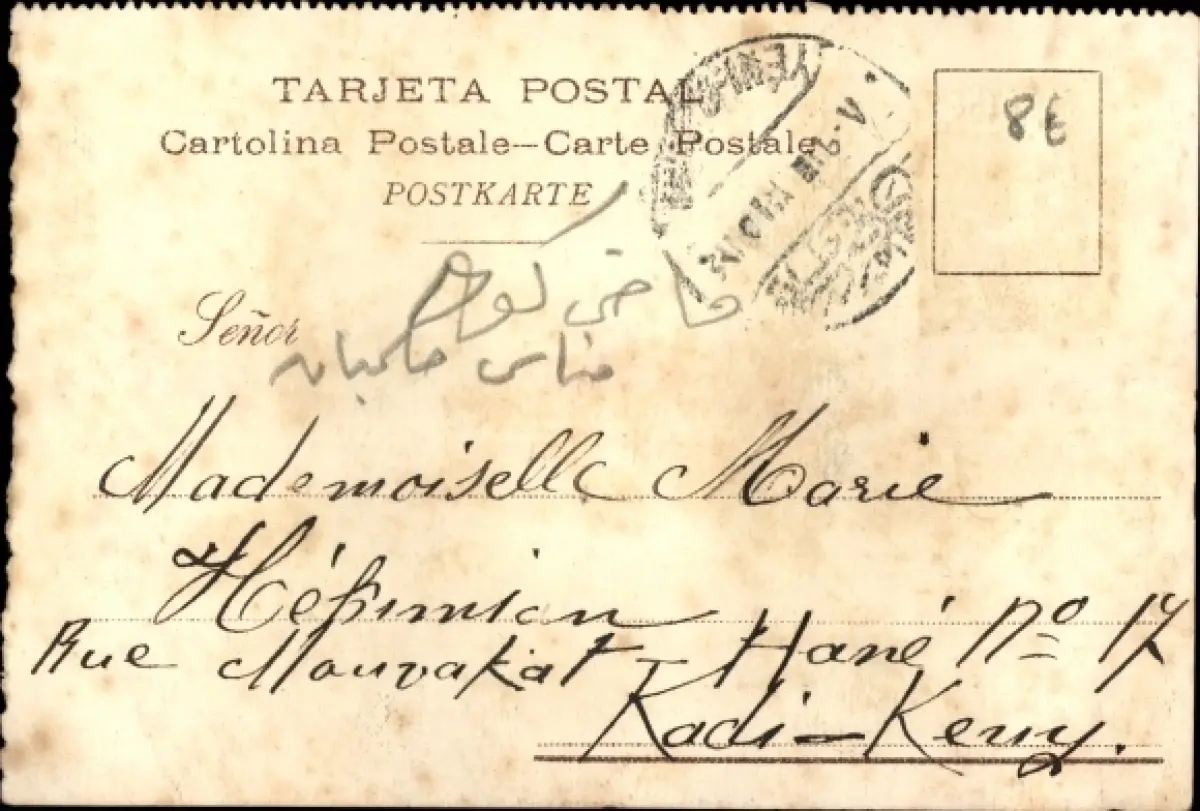 TARJETA POSTAL
Cartolina Postale—Carte Postale
POSTKARTE
8€
Señor
قاضی کوی
Mademoiselle Marie
Rue Mouvakat-Hané No 17
Kadi-Keuy.